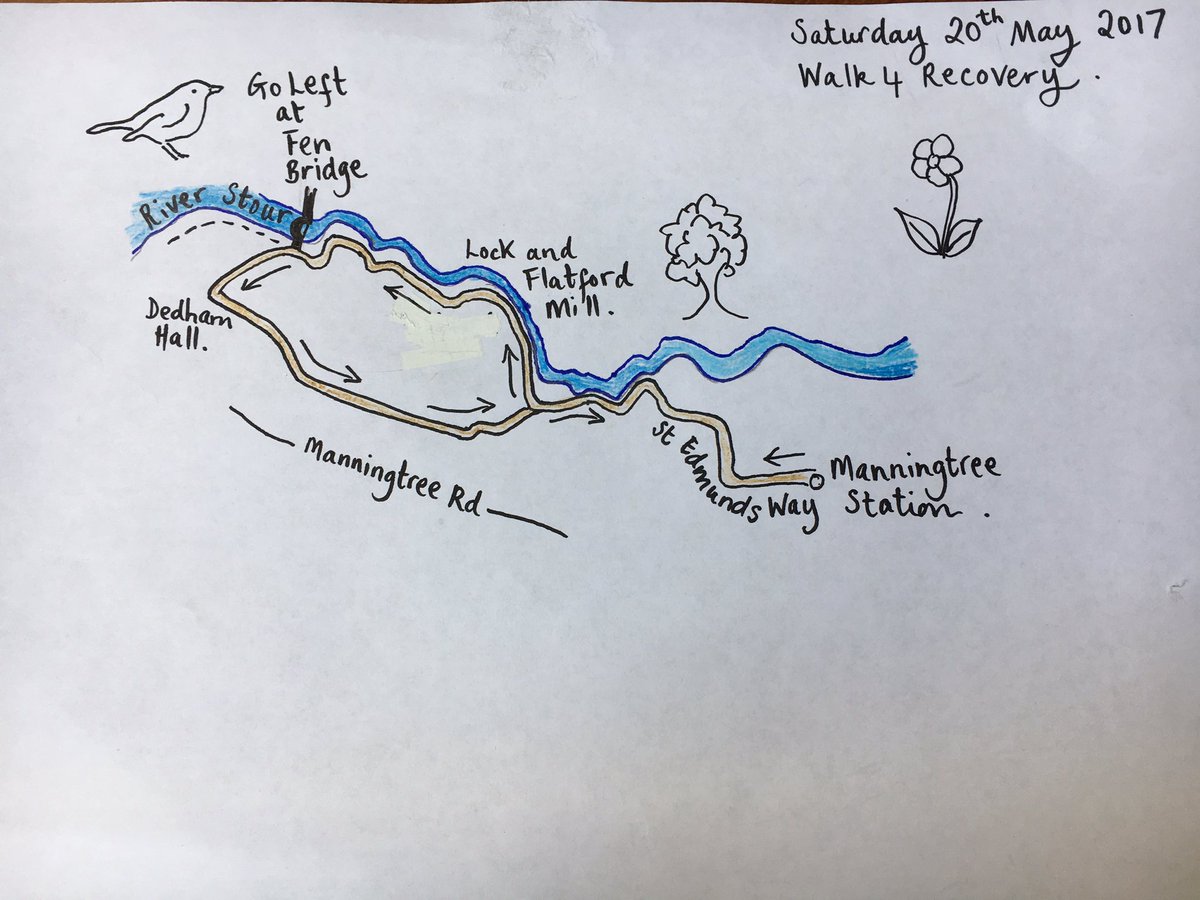 Saturday 20th May 2017
Walk 4 Recovery.
Go Left
at
Fen
Bridge
River Stour
Lock and
Flatford
Mill.
Dedham
Hall.
Manningtree Rd
St Edmunds Way
Manningtree
Station.